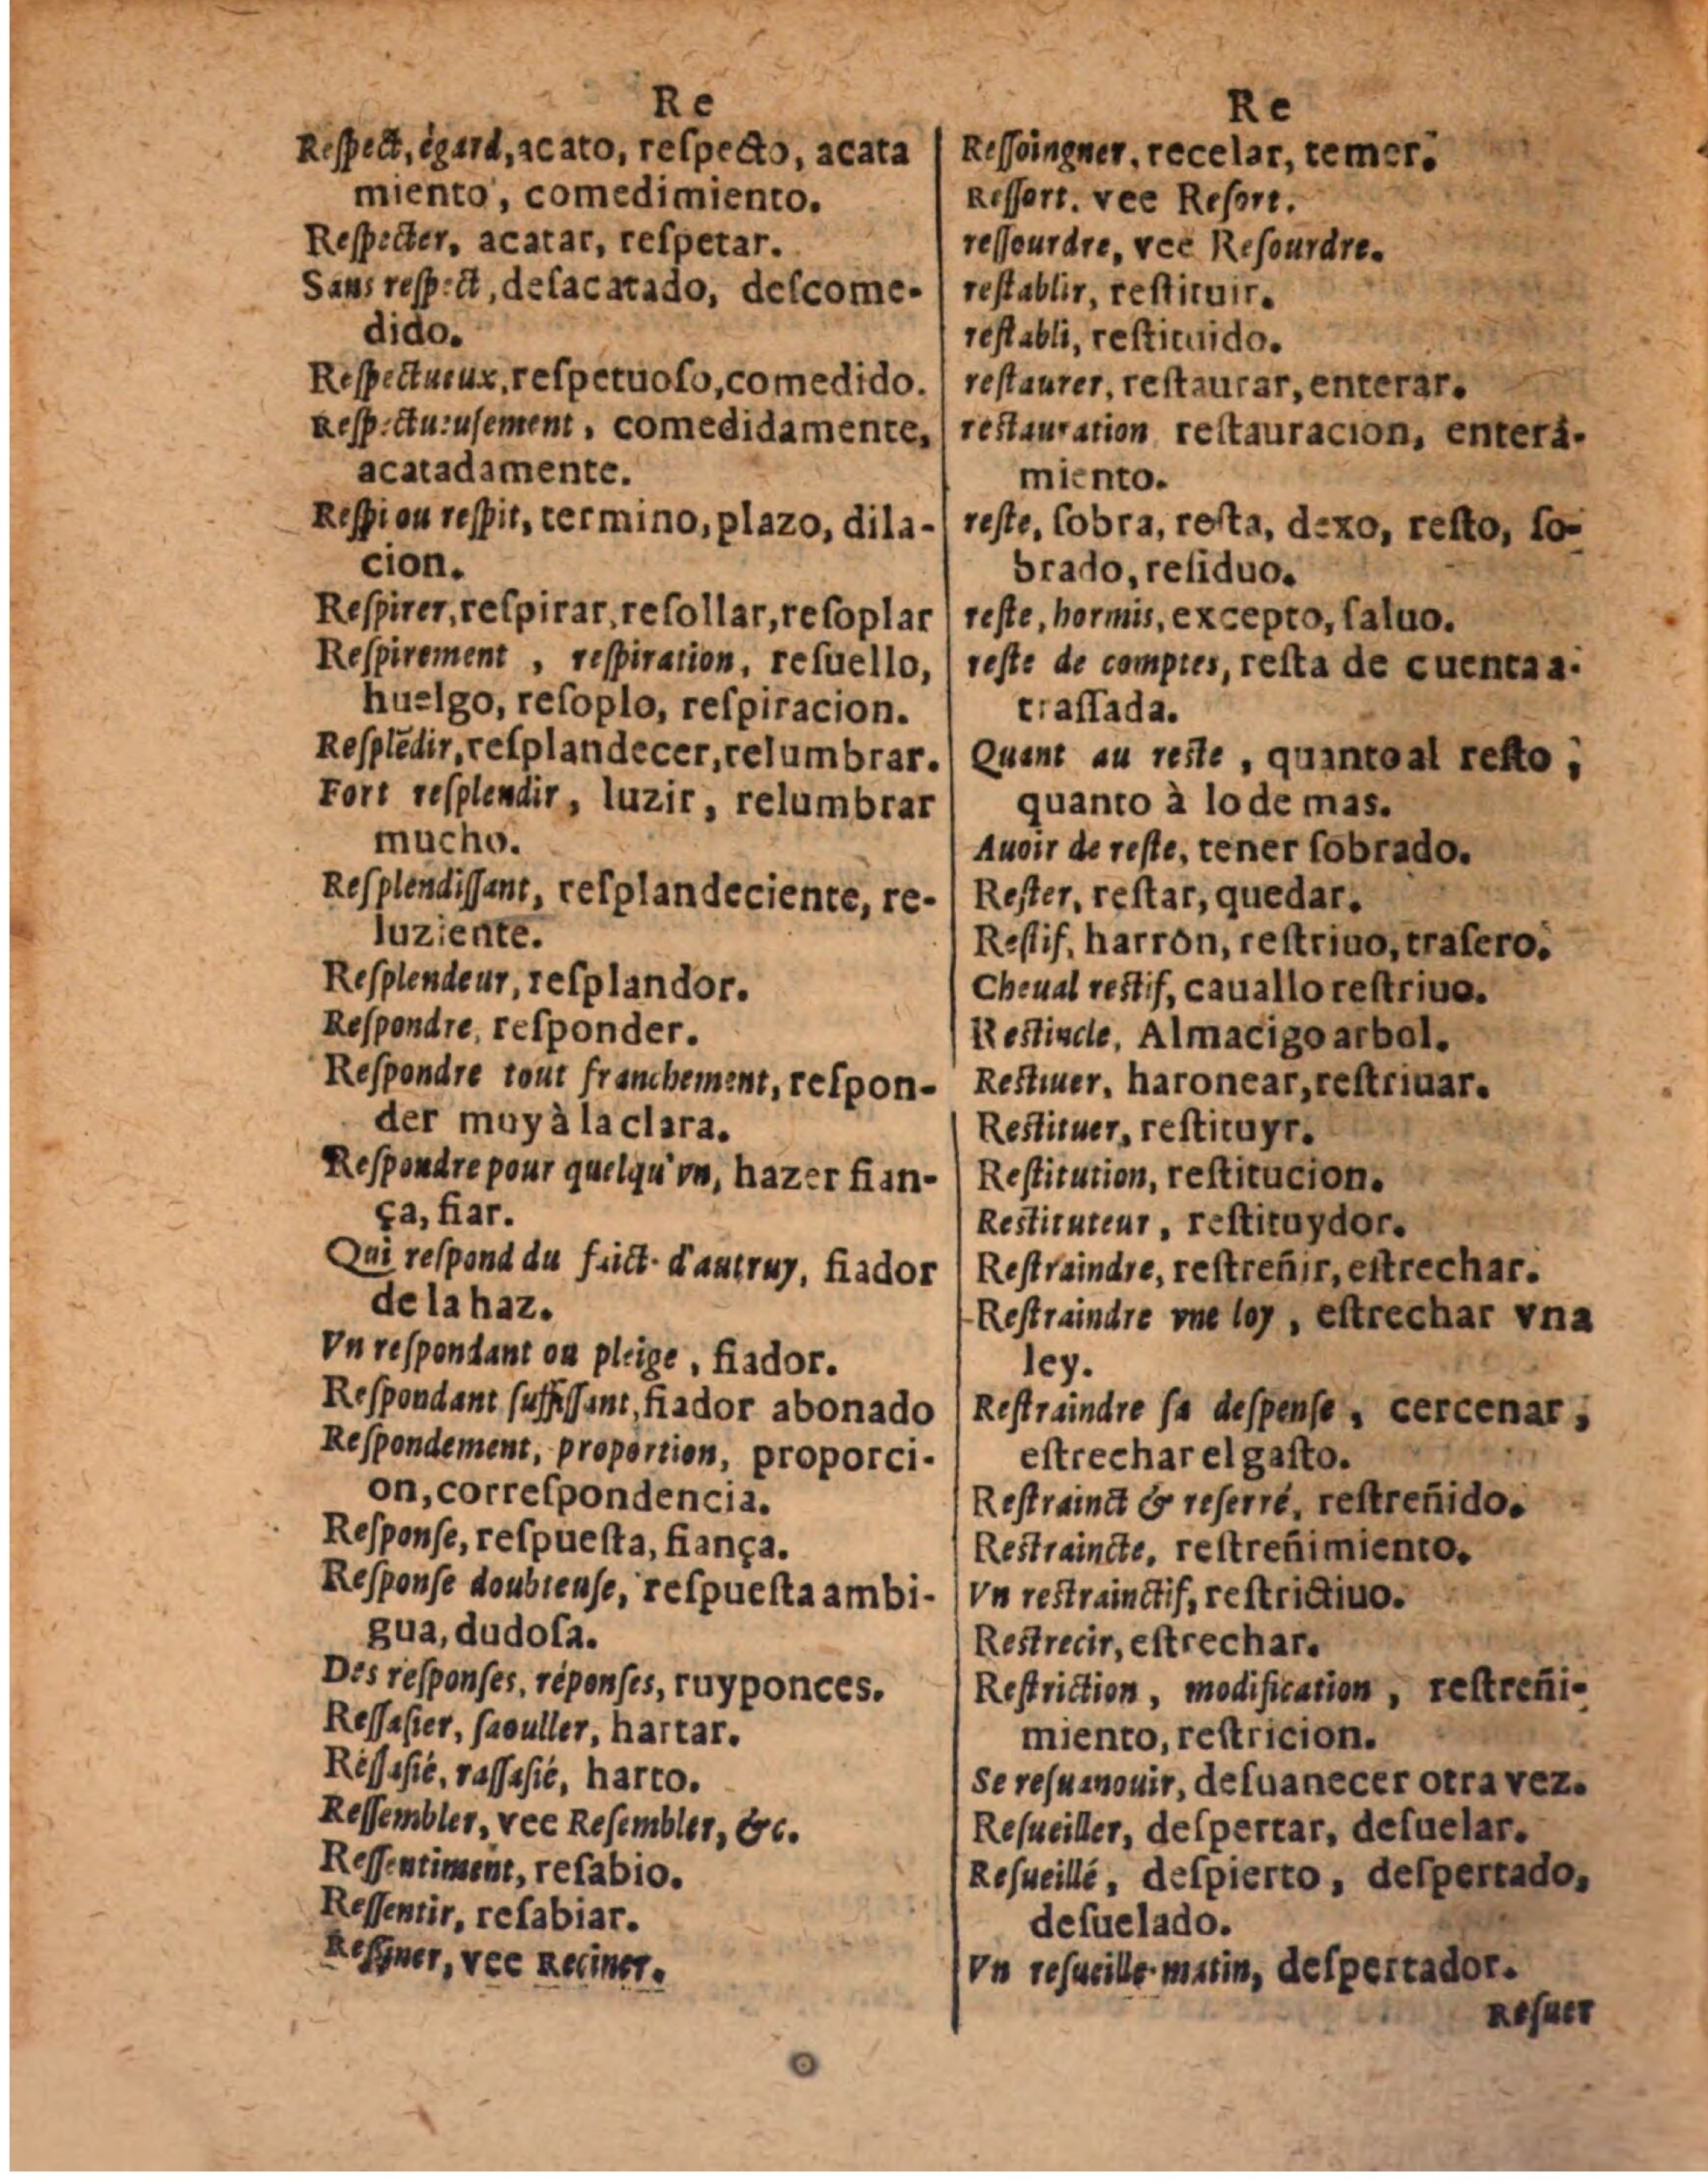 Re
Reſpect, égard, acato, reſpecto, acata
miento, comedimiento.
Reſpecter, acatar, reſpetar.
Sans reſpect, deſacatado, deſcome-
dido.
Reſpectueux, reſpetuoſo, comedido.
Reſpectueuſement, comedidamente,
acatadamente.
Reſpi ou reſpit, termino, plazo, dila-
cion.
Reſpirer, reſpirar, reſollar, reſoplar
Reſpirement, reſpiration, reſuello,
huelgo, reſoplo, reſpiracion.
Reſplẽdir, reſplandecer, relumbrar.
Fort reſplendir, luzir, relumbrar
mucho.
Reſplendiſſant, reſplandeciente, re-
luziente.
Reſplendeur, reſplandor.
Reſpondre, reſponder.
Reſpondre tout franchement, reſpon-
der muy à la clara.
Reſpondre pour quelqu'vn, hazer fian-
ça, fiar.
Qui reſpond du faict d'autruy, fiador
de la haz.
Vn reſpondant ou pleige, fiador.
Reſpondant ſuffiſſant, fiador abonado
Reſpondement, proportion, proporci-
on, correſpondencia.
Reſponſe, reſpueſta, fiança.
Reſponſe doubteuſe, reſpueſta ambi-
gua, dudoſa.
Des reſponſes, réponſes, ruyponces.
Reſſaſier, ſaouller, hartar.
Reſſaſié, raſſaſié, harto.
Reſſembler, vee Reſembler, &c.
Reſſentiment, reſabio.
Reſſentir, reſabiar.
Reſſiner, vee Reciner.
Re
Reſſoingner, recelar, temer.
Reſſort. vee Reſort.
reſſourdre, vee Reſourdre.
reſtablir, reſtituir.
reſtabli, reſtituido.
reſtaurer, reſtaurar, enterar.
reſtauration reſtauracion, enterá-
miento.
reſte, ſobra, reſta, dexo, reſto, ſo-
brado, reſiduo.
reſte, hormis, excepto, ſaluo.
reſte de comptes, reſta de cuenta a-
traſſada.
Quant au reſte, quanto al reſto,
quanto à lo de mas.
Auoir de reſte, tener ſobrado.
Reſter, reſtar, quedar.
Reſtif, harròn, reſtriuo, traſero.
Cheual reſtif, cauallo reſtriuo.
Reſtincle, Almacigo arbol.
Reſtiuer, haronear, reſtriuar.
Reſtituer, reſtituyr.
Reſtitution, reſtitucion.
Reſtituteur, reſtituydor.
Reſtraindre, reſtreñir, eſtrechar.
Reſtraindre vne loy, eſtrechar vna
ley.
Reſtraindre ſa deſpenſe, cercenar,
eſtrechar el gaſto.
Reſtrainct & reſerré, reſtreñido.
Reſtraincte, reſtreñimiento.
Vn reſtrainctif, reſtrictiuo.
Reſtrecir, eſtrechar.
Reſtriction, modification, reſtreñi-
miento, reſtricion.
Se reſuanouir, deſuanecer otra vez.
Reſueiller, deſpertar, deſuelar.
Reſueillé, deſpierto, deſpertado,
deſuelado.
Vn reſueille-matin, deſpertador.
Reſuer